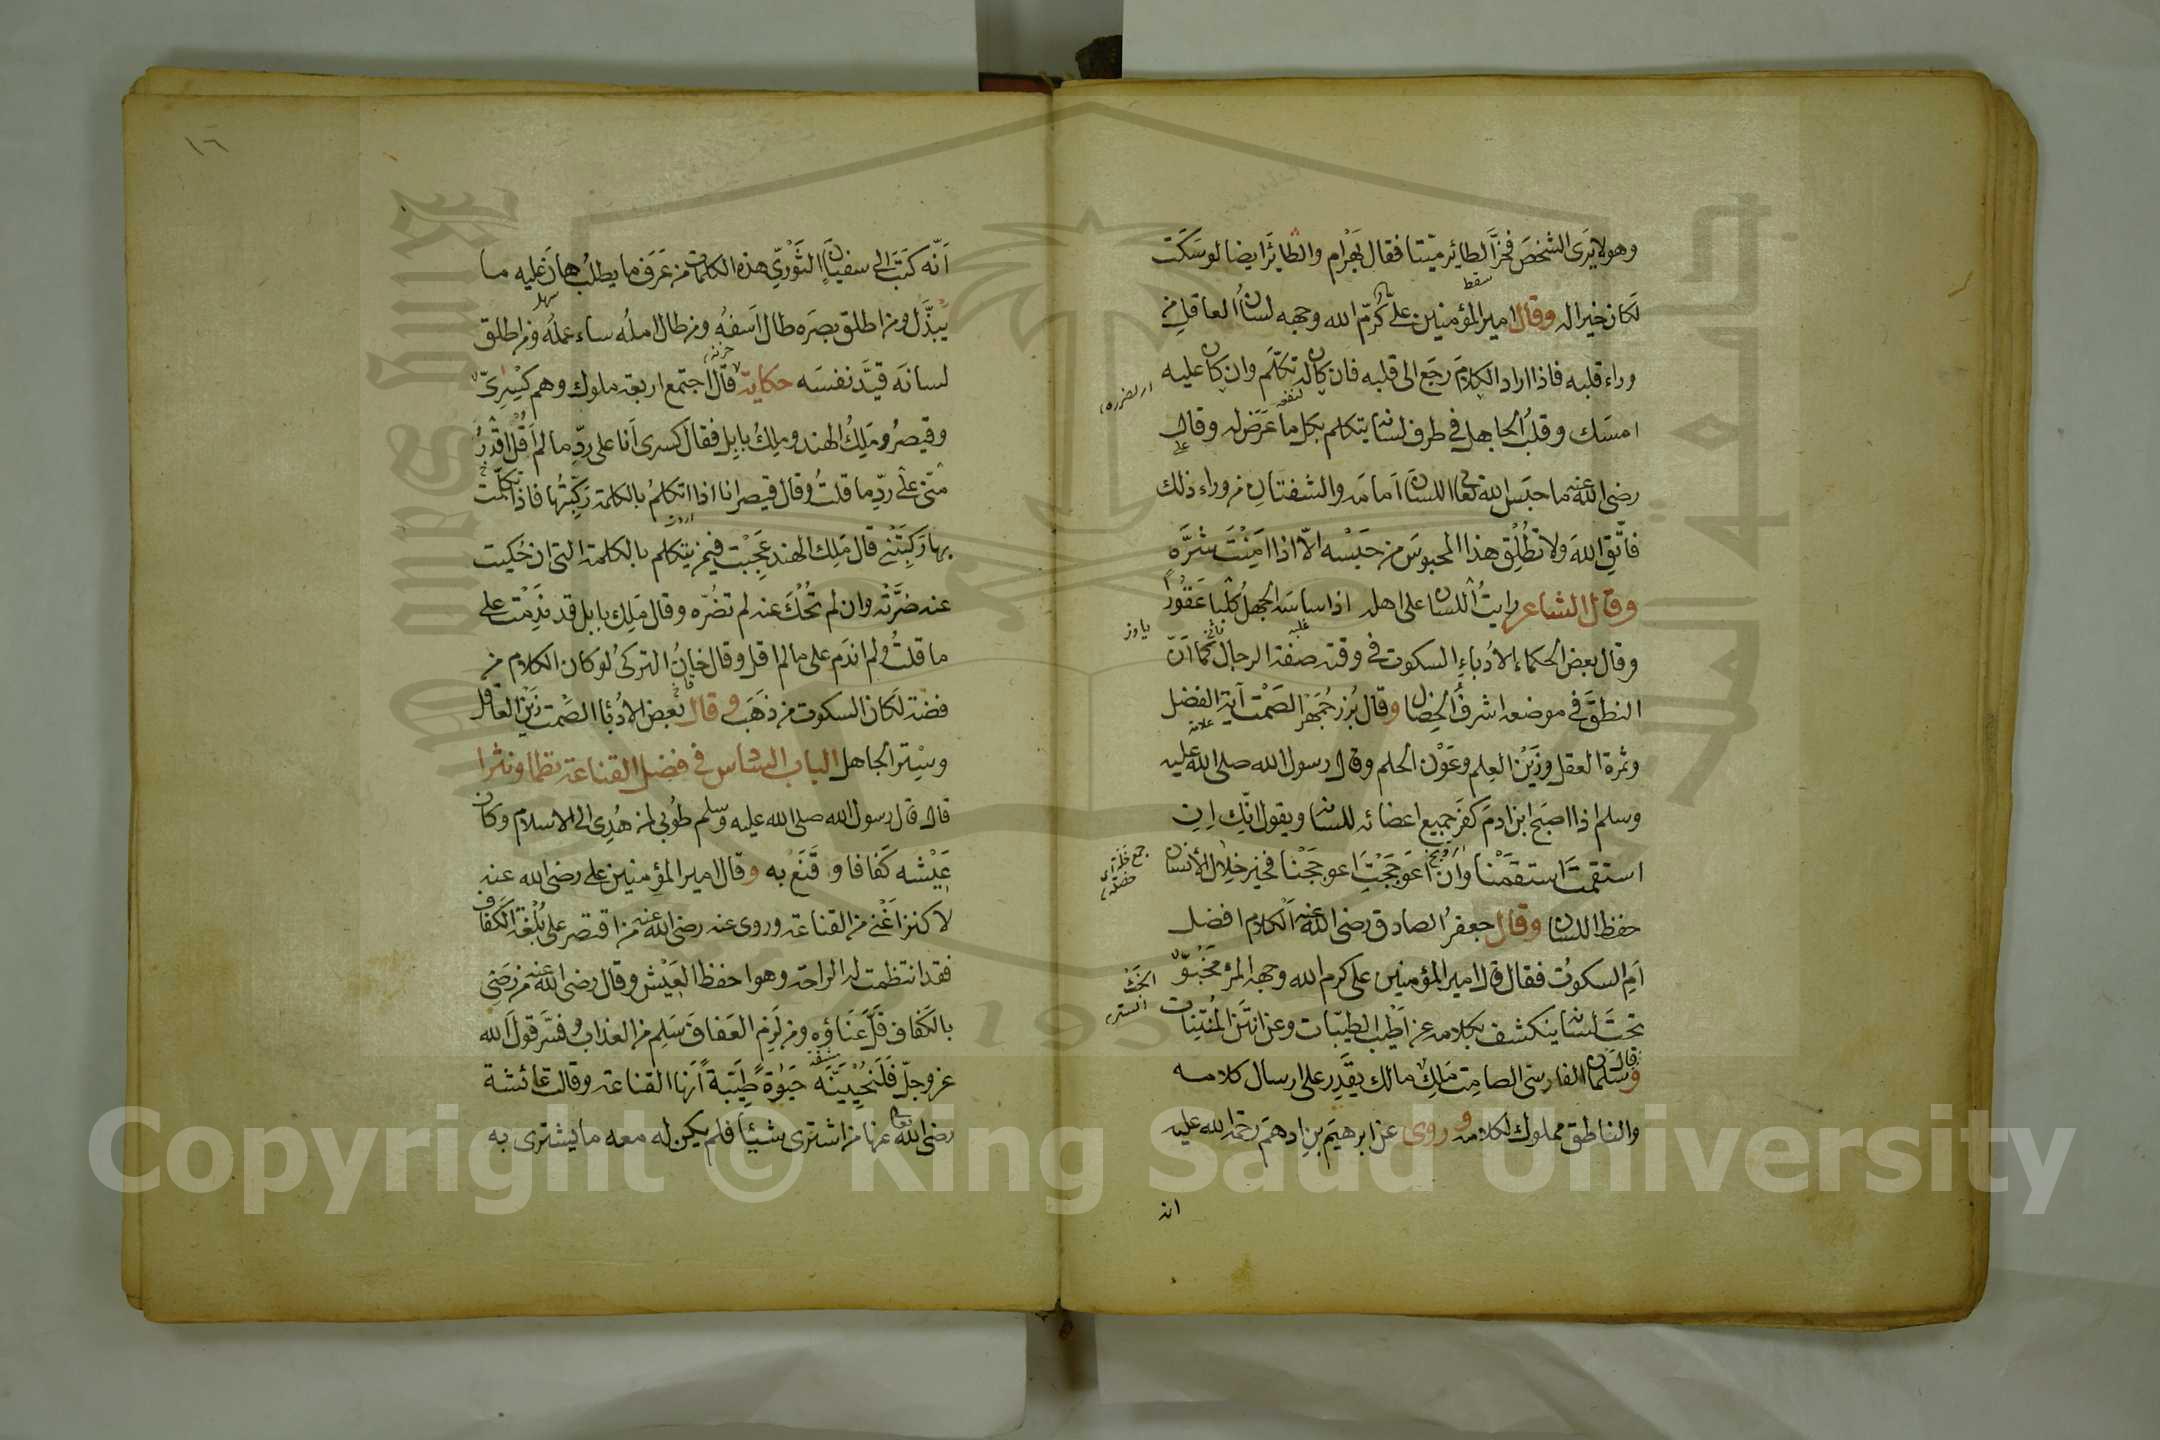 وهو لا يَرَى الشخصَ فخرَّ الطائِر ميّتا فقال بَهْرام والطّائرُ ايضا لو سَكَتَ
سقط
لَكان خيرا له وقال امير المؤمنين عليّ كَرَّمَ الله وجهه لسانُ العاقل من
وراء قلبه فاذا اراد الكلامَ رجَع الى قلبه فان كان له تكلَّم وان كان عليه
امسَك وقلبُ الجاهل في طرف لسانه يتكلم بكل ما عَرَض له وقال
على
رضى الله عنه ما حبَس الله تعالى اللسانَ امامه والشفتان من وراء ذلك
فاتَّقِ اللهَ ولا تطْلِق هذا المحبوسَ من حَبْسه الّا اذا امِنْتَ شرَّه
وقال الشاعر رايتُ اللسان على اهله اذا ساسه الجهلُ كلْبا عَقُورًا
وقال بعض الحكماء الادُباءِ السكوت في وقته صفة الرجال كما اَنّ
النطقَ في موضعه اشرفُ الخِصَال وقال بُزرجُمَهْر الصَمْت آية الفضل
علامة
وثمرة العقل وزَيْن العِلم وعَوْن الحلم وقال رسول الله صلى الله عليه
وسلم اذا اصبَح ابن ادمَ كفَر جميع اعضائه للسانه ويقول انّك اِنِ
استقمتَ استقَمْنا وَانْ اعوَجَجْتَ اعوججْنا فخير خِلال الانسان
حفظ اللسان وقال جعفرُ الصادق رضى الله عنه اَلْكلام افضل
اَمِ السكوتُ فقال قال امير المؤمنين على كرم الله وجهه المرْءُ مَخْبُوّ
تحتَ لسانه ينكشف بكلامه عن اَطْيب الطيّبات وعن انتَن المُنْتِنات
وقال سلمان الفارسىّ الصامِت مَلِك مالك يقدِر على ارسال كلامه
والناطق مملوك لكلامه وروى عن ابرهيمَ بنِ ادهمَ رحمة الله عليه
انه
١٦
اَنّه كَتَبَ الى سفيانَ الثَوْرِيّ هذه الكلمات من عَرَف ما يطلبُ هانَ عليه ما
سهل
يَبذُل ومن اطلق بصَره طال اَسَفهُ ومن طال املُه ساء عملُه ومن اطلق
حزنه
لسانَه قيَّد نفسَه حكاية قال اجتمع اربعة ملوك وهم كِسْرىّ
وقيصرُ ومَلِكُ الهند وملِكُ بابِل فقال كسرى اَنا على ردِّ ما لم اَقُلْ اقْدَرُ
منّى على ردِّ ما قلتُ وقال قيصر انا اذا اتكلمُ بالكلمة رَكِبْتُها فاذا تكلَّمْتُ
بها رَكِبَتْني قال مَلِك الهند عَجِبْت فيمن يتكلم بالكلمة التى ان حُكيت
عنه ضرَّتْه وان لم تُحْكَ عنه لم تضُرّه وقال مَلِك بابل قد نَدِمْت على
ما قلتُ ولم اندَم على ما لم اقل وقال خانُ التركىُ لو كان الكلام من
فضة لَكان السكوت من ذهَب وقال بعض الادُبَا الصَمْت زَيْن العاقل
وسِتر الجاهل الباب السّادس فى فضل القناعة نظما ونثرا
قال قال رسول الله صلى الله عليه وسلم طُوبى لمن هُدِى الى الاسلام وكان
عَيْشه كَفافا وقَنَع به وقال امير المؤمنين على رضى الله عنه
لا كنز اَغْنى من القناعة وروى عنه رضى الله عنه مَن اقتصر على بُلْغة الكَفاف
فقد انتظمت له الراحة وهو احفظ العَيْش وقال رضى الله عنه من رَضِىَ
بالكَفاف قَلَّ عَنَاؤُه ومن لَزِمَ العَفافَ سَلِم من العذاب وفسَّر قولَ الله
مشقته
عز وجلّ فَلَنُحْيِيَنَّه حَيٰوةً طَيّبةً اَنها القناعة وقالت عائشة
رضى الله تعالى عنها من اشترى شيْئا فلم يكن له معه ما يشترى به